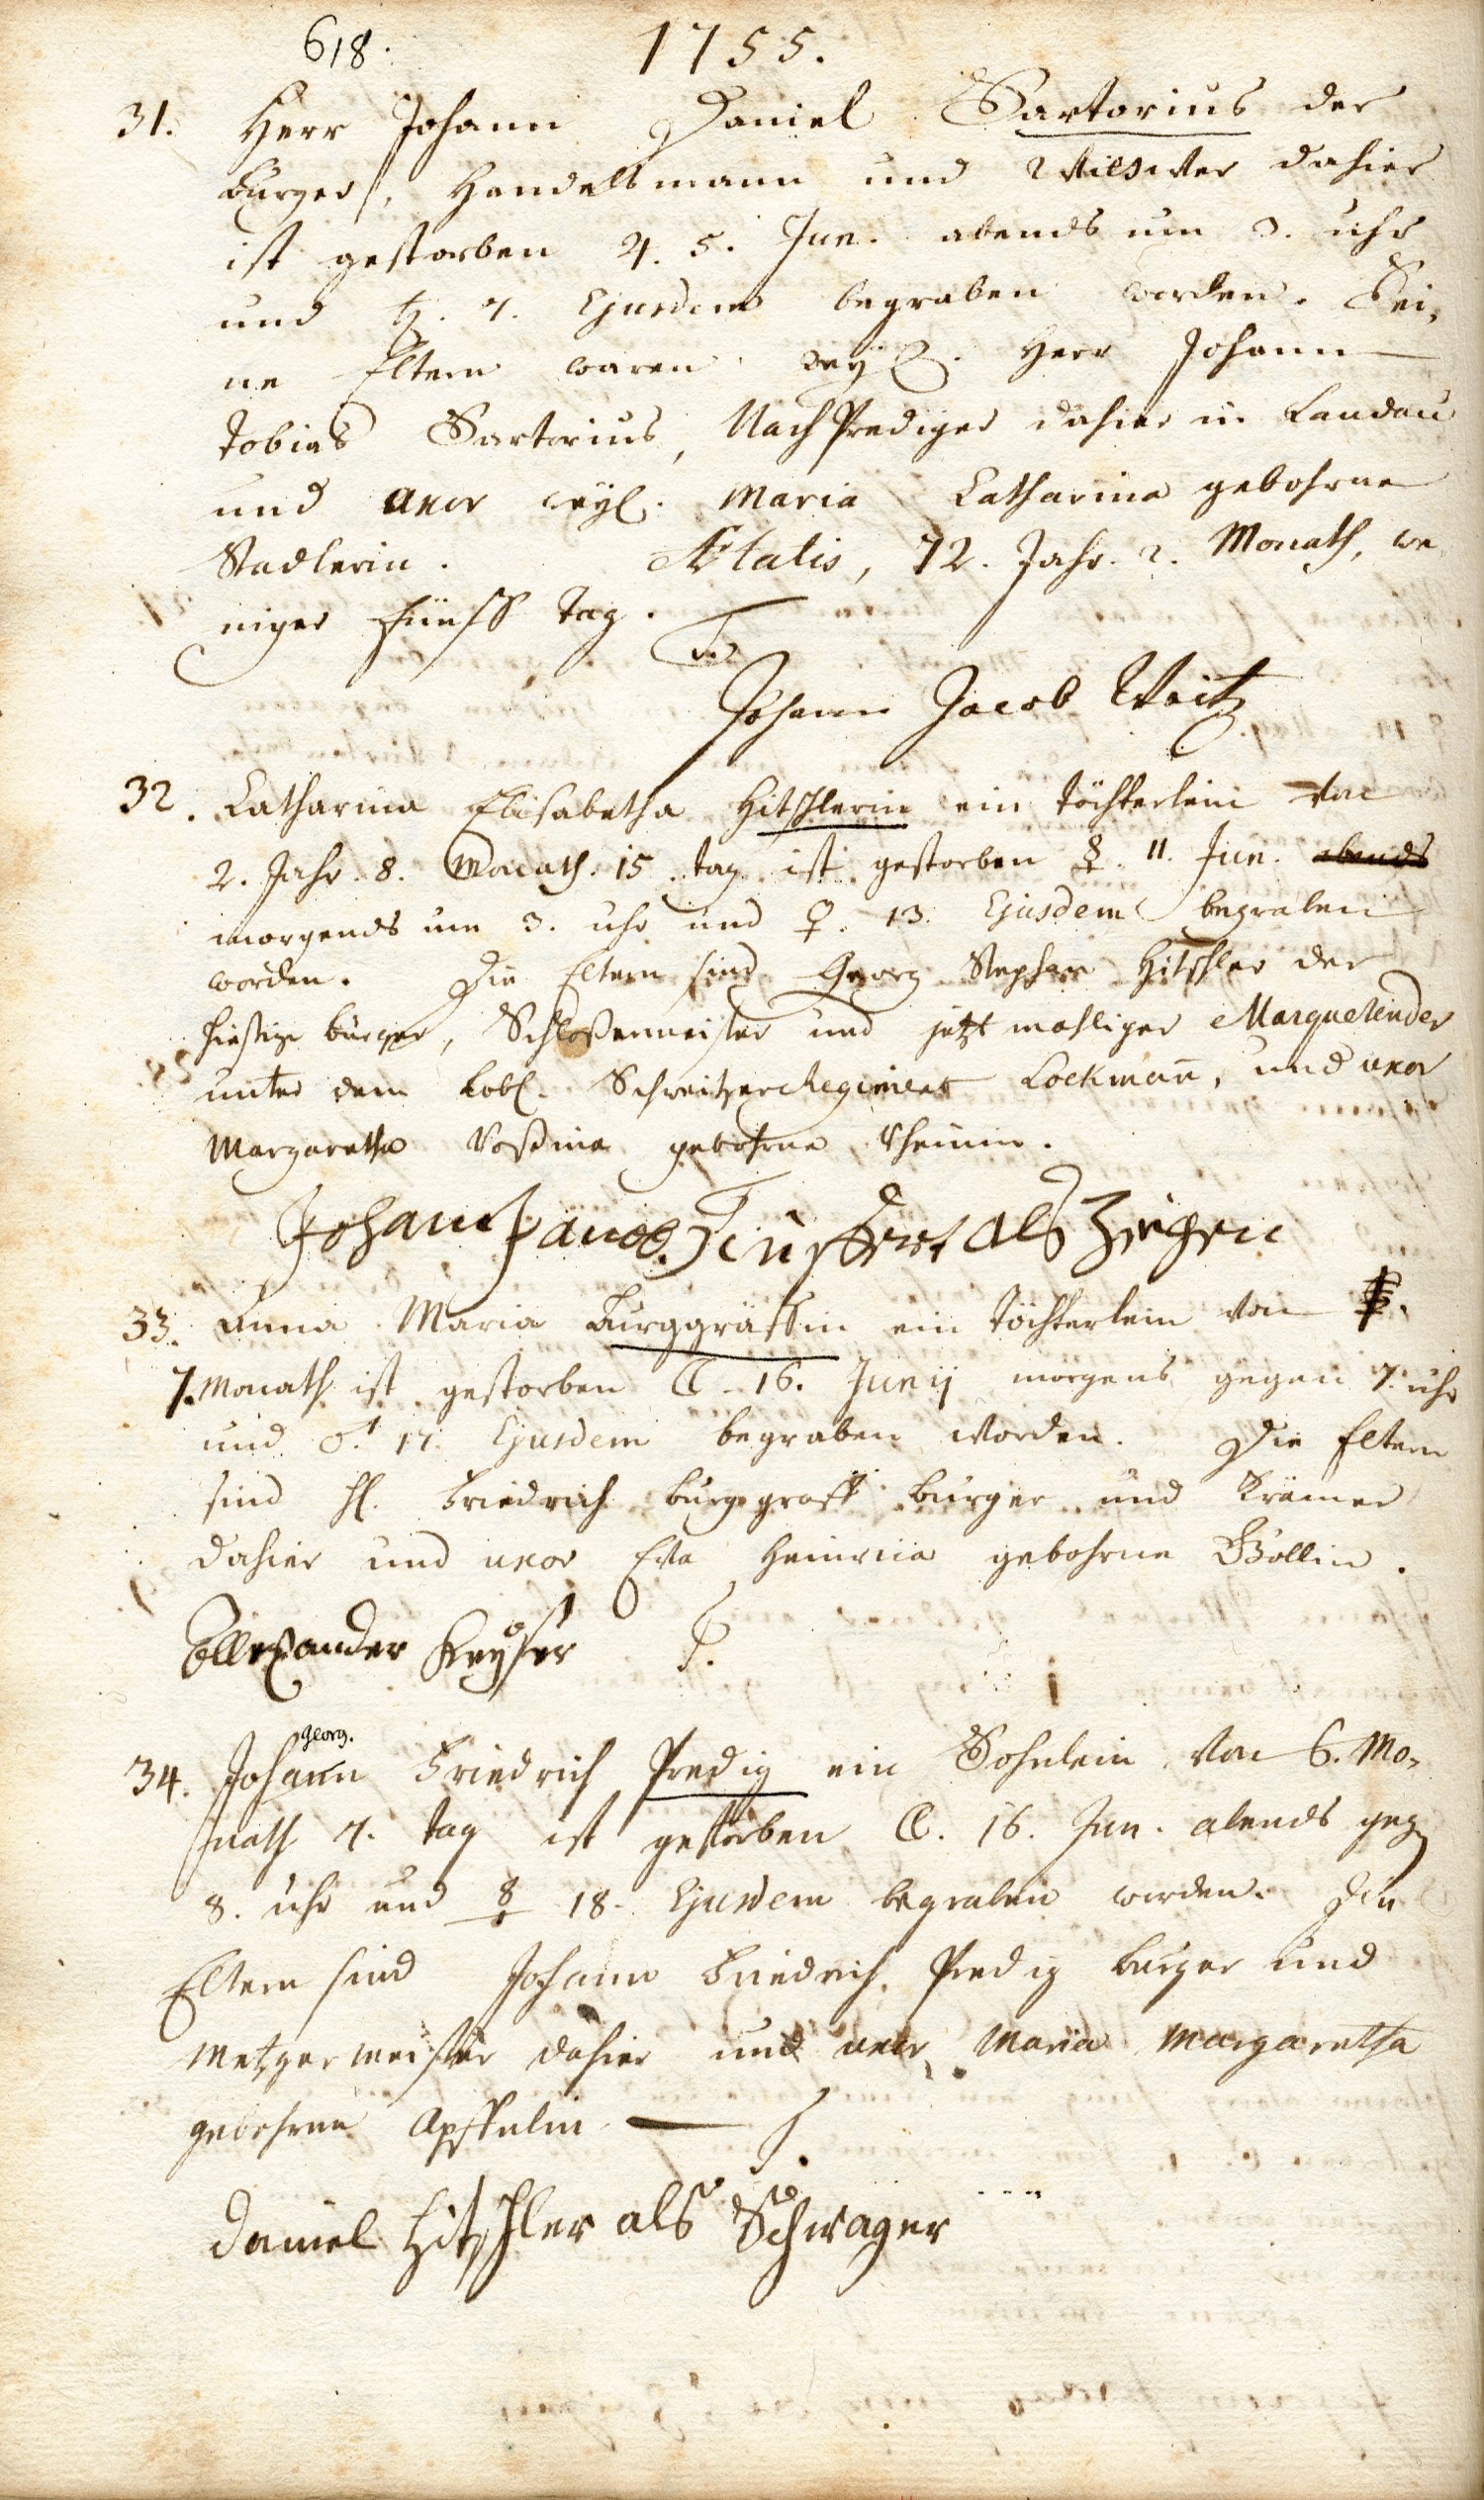 618. 1755.
31. Herr Johann Daniel Sartorius der
burger, Handelsmann und dahier
ist gestorben ♃. 5. Jun. abends um 3. uhr
und ♄. 7. Ejusdem begraben worden. Sei,
ne Eltern waren weyl. Herr Johann
Tobias Sartorius, Nach Prediger dahier in Landau
und uxor weyl. Maria Catharina gebohrne
Stadlerin. Ætatis, 72. Jahr. 2. Monath, we
niger fünff Tag.
Johann Jacob Weitz
32. Catharina Elisabetha Hitschlerin ein töchterlein von
2. Jahr. 8. Monath. 15. tag ist gestorben ☿. 11. Jun. abends
morgends um 3. uhr und ♀. 13. Ejusdem begraben
worden. Die Eltern sind Georg Stephan Hitschler der
hiesige burger, Schloßermeister und jetzt mahliger Marquetender
unter dem Lobl. Schweitzer Regiment Lockmañ, und uxor
Margaretha gebohrne
Johann als Zeigen
33. Anna Maria Burggräffin ein Töchterlein von
7. Monath ist gestorben ☾. 16. Junij morgens gegen 7. uhr
und ♂. 17. Ejusdem begraben worden. Die Eltern
sind H. Friedrich Burggraff burger und Krämer
dahier und uxor Eva gebohrne Böllin.
Allexander Keyser
34. Johann Georg. Friedrich Predig ein Sohnlein von 6. Mo,
nath 7. tag ist gestorben ☾. 16. Jun. abends geg
8. uhr und ☿ 18. Ejusdem begraben worden. Die
Eltern sind Johann Friedrich Predig burger und
Metzgermeister dahier und uxor Maria Margaretha
gebohrne Apffelin
Daniel Hitschler als Schwager